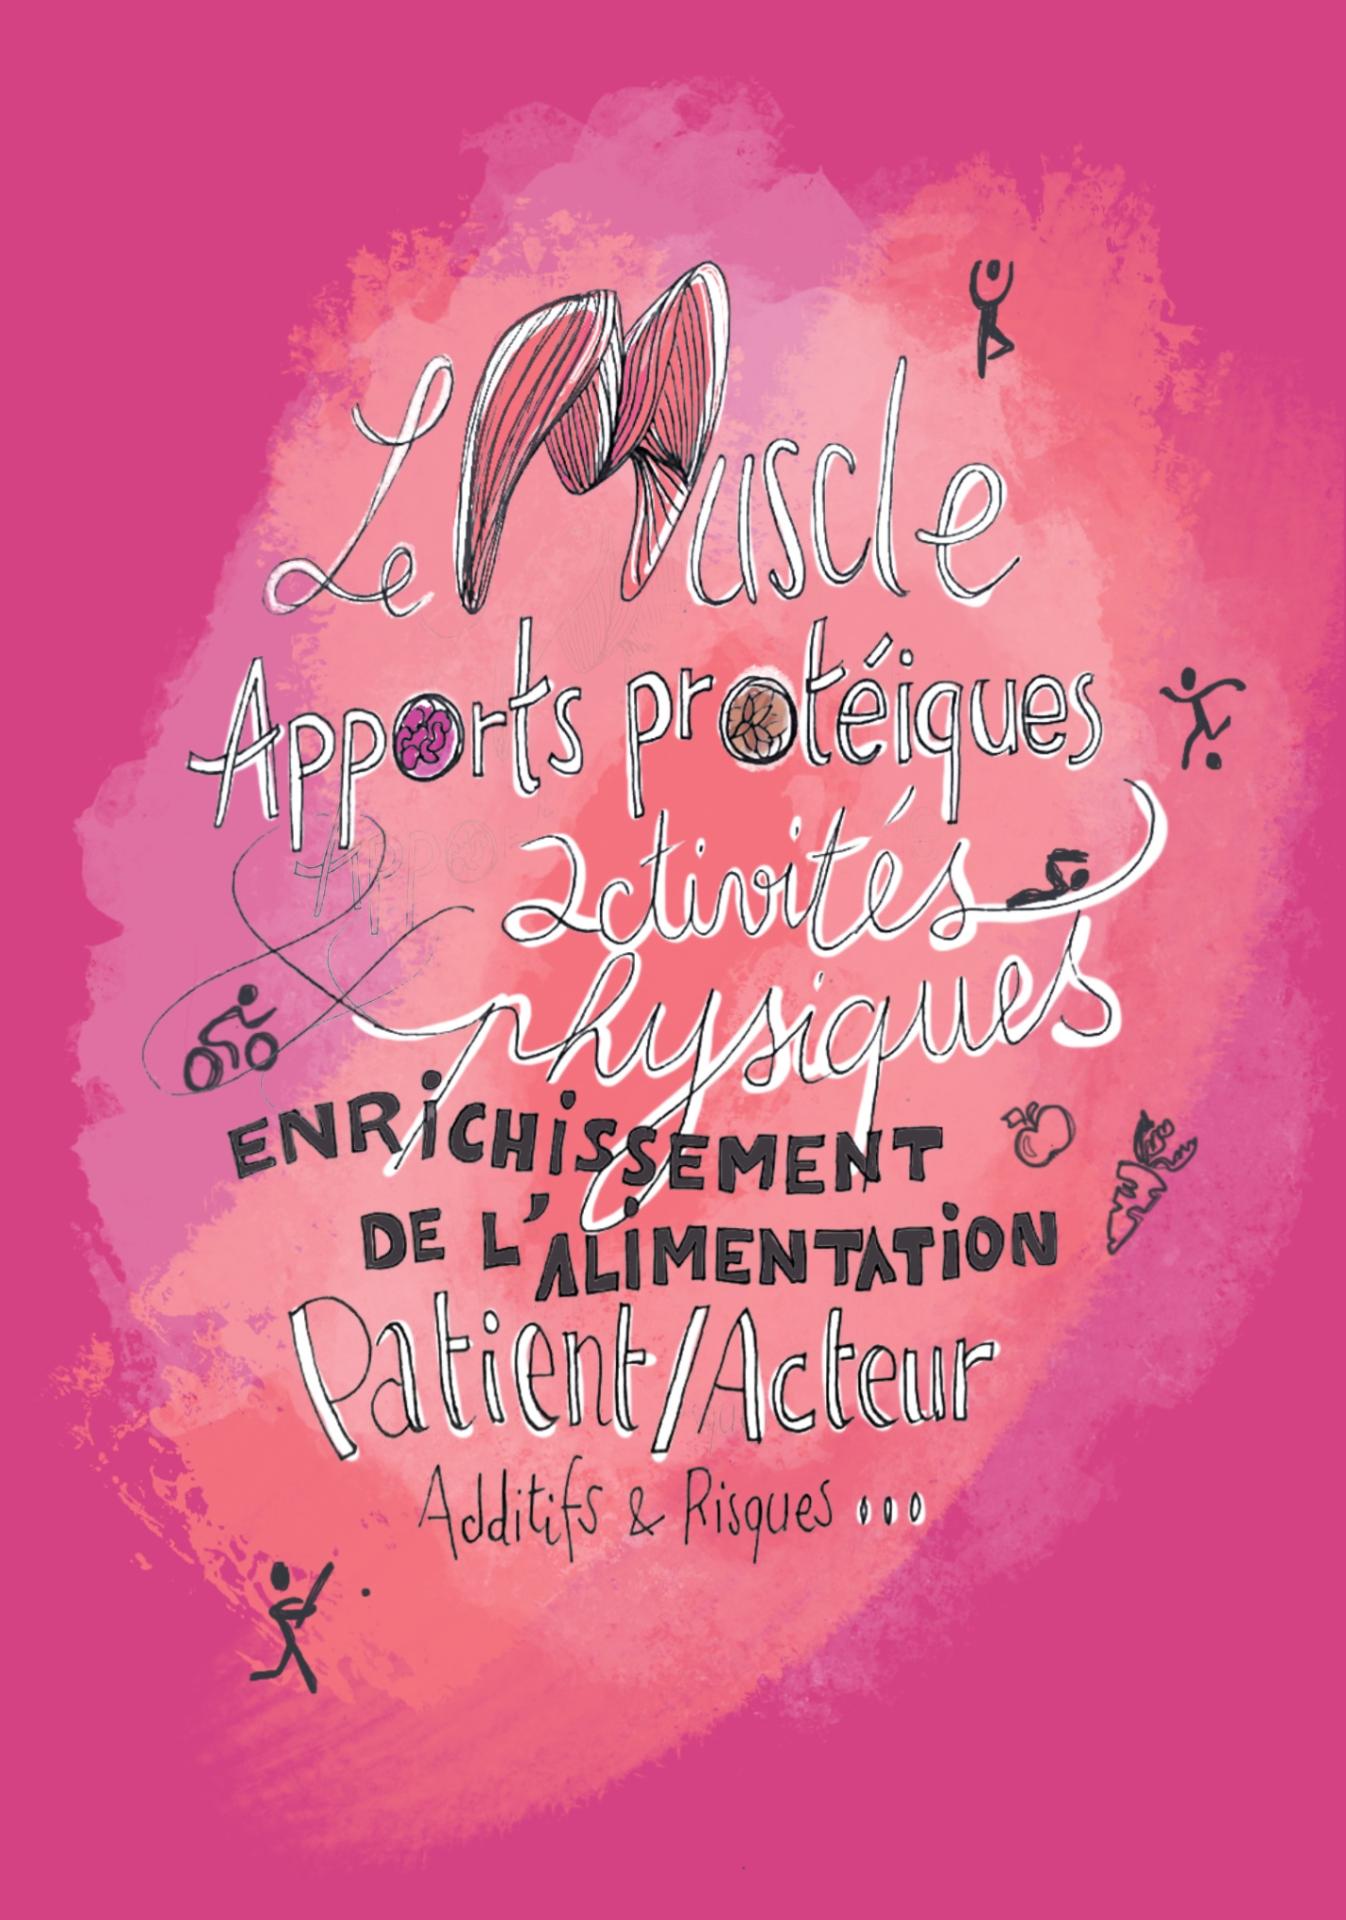 Le Muscle
Apports protéiques
Appo
& activités
physiques
ENRiCHiSSEMENT
DE L'ALiMENTATiON
Patient/Acteur
Additifs & Risques ...